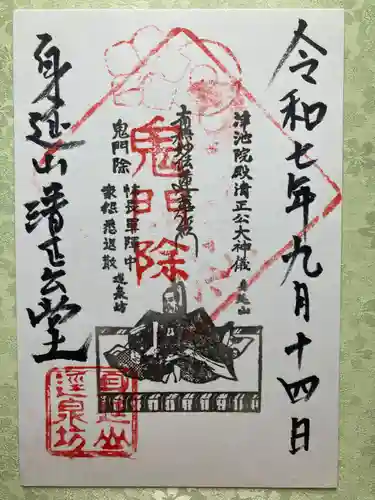 令和七年九月十四日
浄池院殿清正公大神儀
身延山
南無妙法蓮華経
鬼門除
鬼門除
怨敵退散
逕泉坊
身延山清正公堂
身延山
逕泉坊